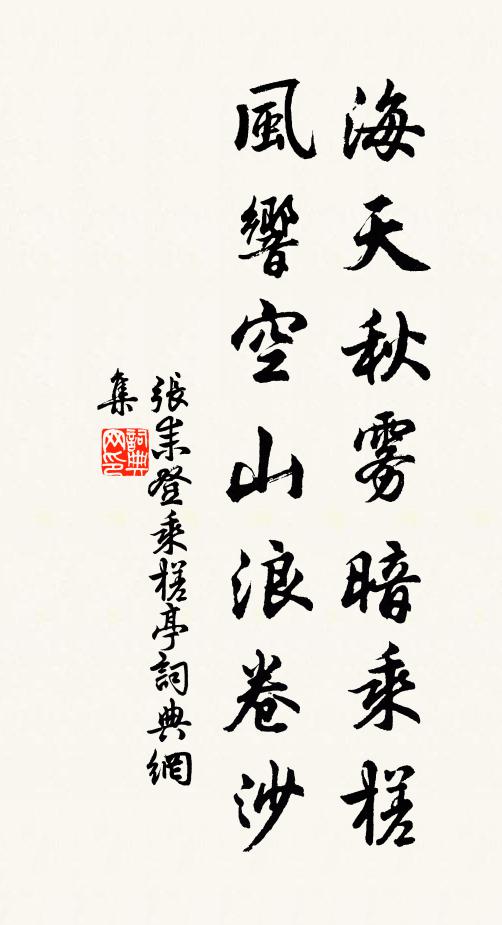 海天秋雾暗乘槎
風響空山浪卷沙
張耒登乘槎亭詞典網
集
詞典
网印